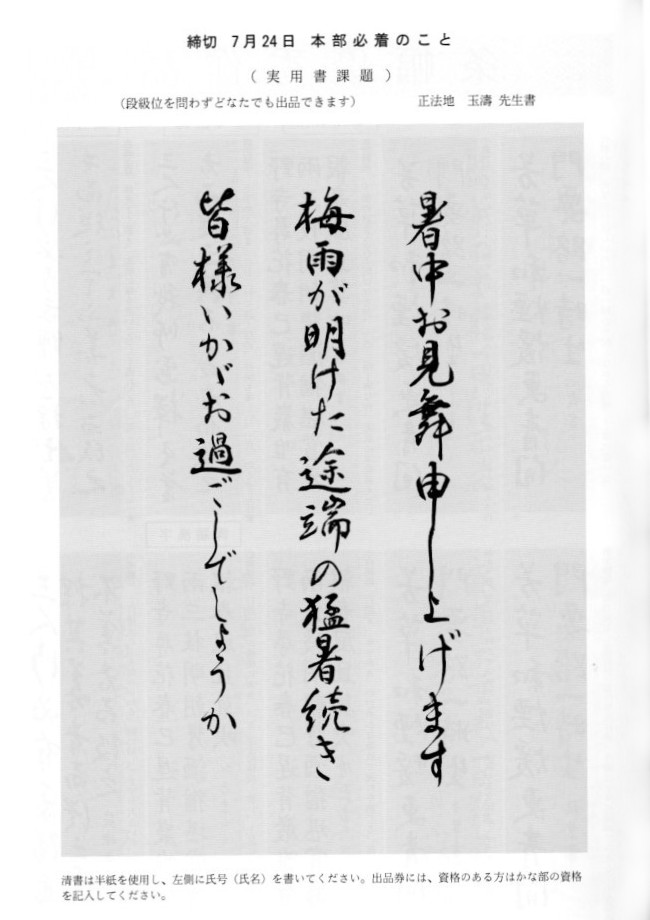 締切 7月24日 本部必着のこと
（実用書課題）
（段級位を問わずどなたでも出品できます） 正法地 玉濤 先生書
暑中お見舞申し上げます
梅雨が明けた途端の猛暑続き
皆様いかがお過ごしでしょうか
清書は半紙を使用し、左側に氏号（氏名）を書いてください。出品券には、資格のある方はかな部の資格
を記入してください。